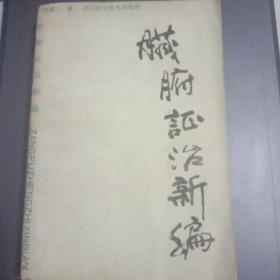 著 四川科学技术出版社
臟腑証治新编
ZANGFUZHENGZHIXINBIAN